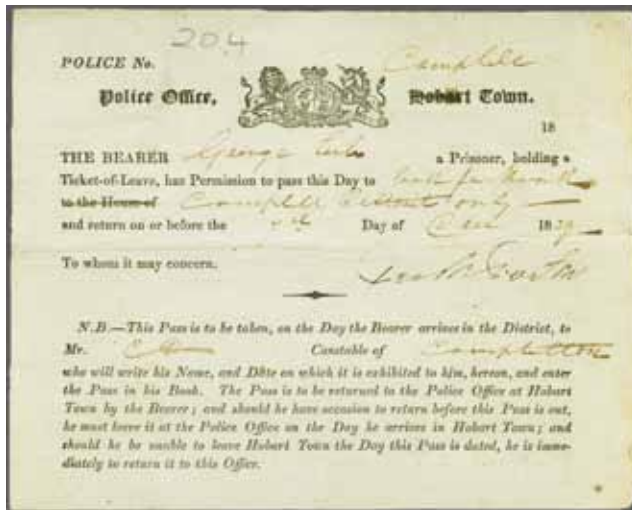 204
POLICE No. Campbell
Police Office, Hobart Town.
18
THE BEARER George a Prisoner, holding a
Ticket-of-Leave, has Permission to pass this Day to
to the House of Campbell only
and return on or before the Day of 1829
To whom it may concern.
N.B.—This Pass is to be taken, on the Day the Bearer arrives in the District, to
Mr. Constable of
who will write his Name, and Date on which it is exhibited to him, hereon, and enter
the Pass in his Book. The Pass is to be returned to the Police Office at Hobart
Town by the Bearer; and should he have occasion to return before this Pass is out,
he must leave it at the Police Office on the Day he arrives in Hobart Town; and
should he be unable to leave Hobart Town the Day this Pass is dated, he is imme-
diately to return it to this Office.